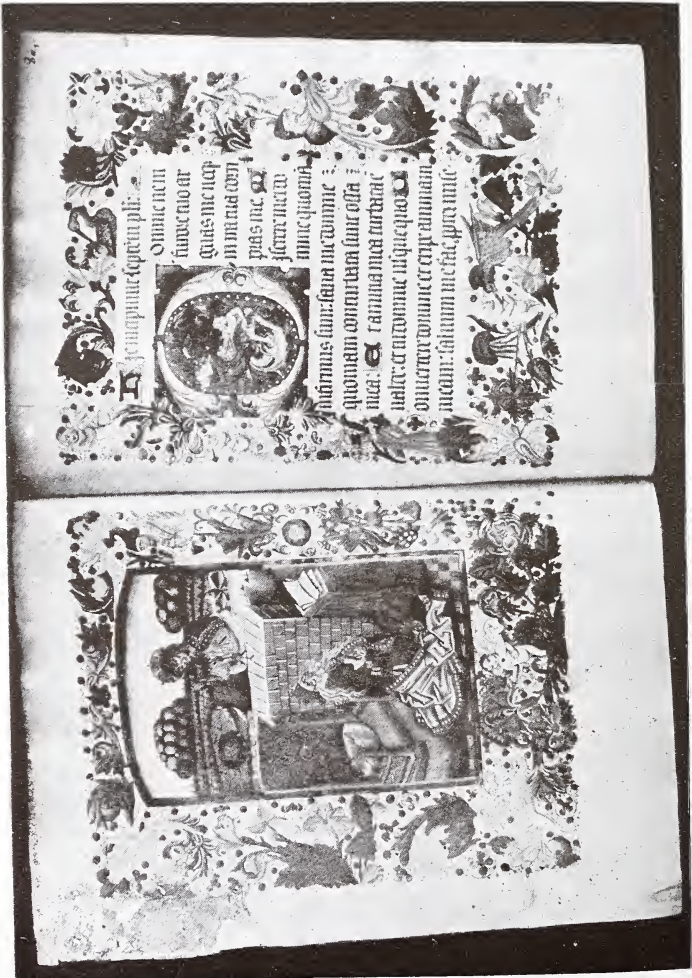 Incipiunt septem ps:
Omine ne in
furore tuo ar
guas me neq
in ira tua corri
pias me. M
serere mei do
mine quonia
infirmus sum: sana me domine:
quoniam conturbata sunt ossa
mea. Et anima mea turbata est
valde: et tu domine usquequo C
onvertere domine et eripe animam
meam: salvum me fac, ppter mise